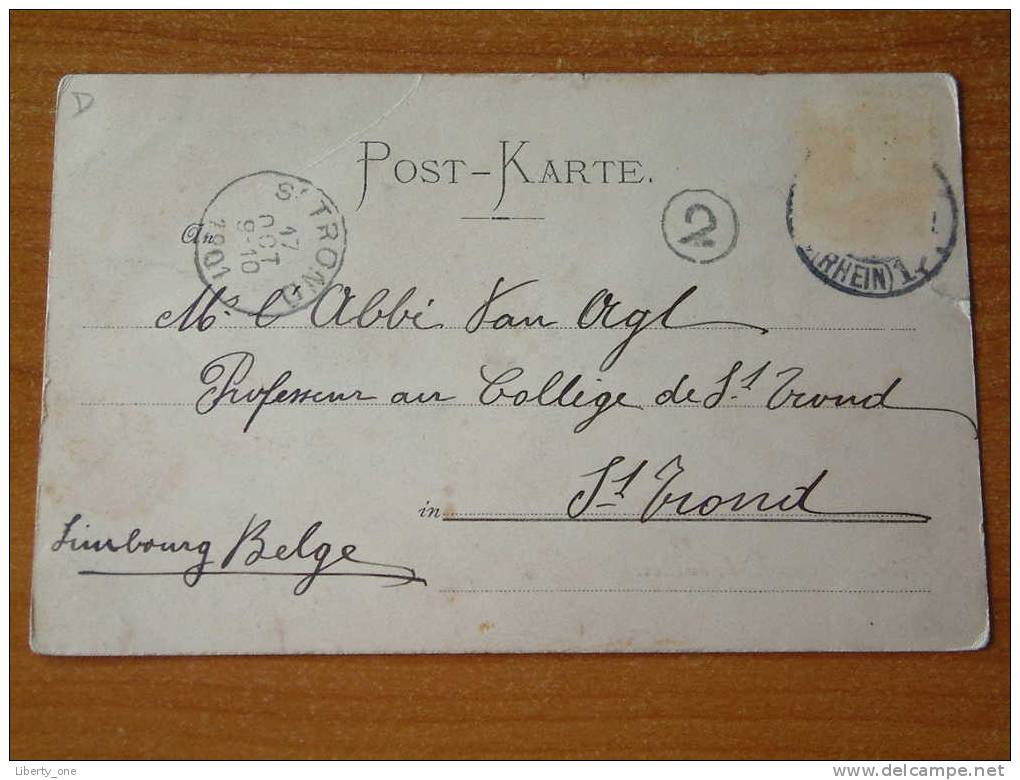 D
POST-KARTE.
ST TROND
17
OCT
9-10
1901
2
(RHEIN) 1
An
Mr l'Abbé Van Agt
Professeur au Collège de St Trond
in St Trond
Limbourg Belge
Liberty_one
delcampe.net